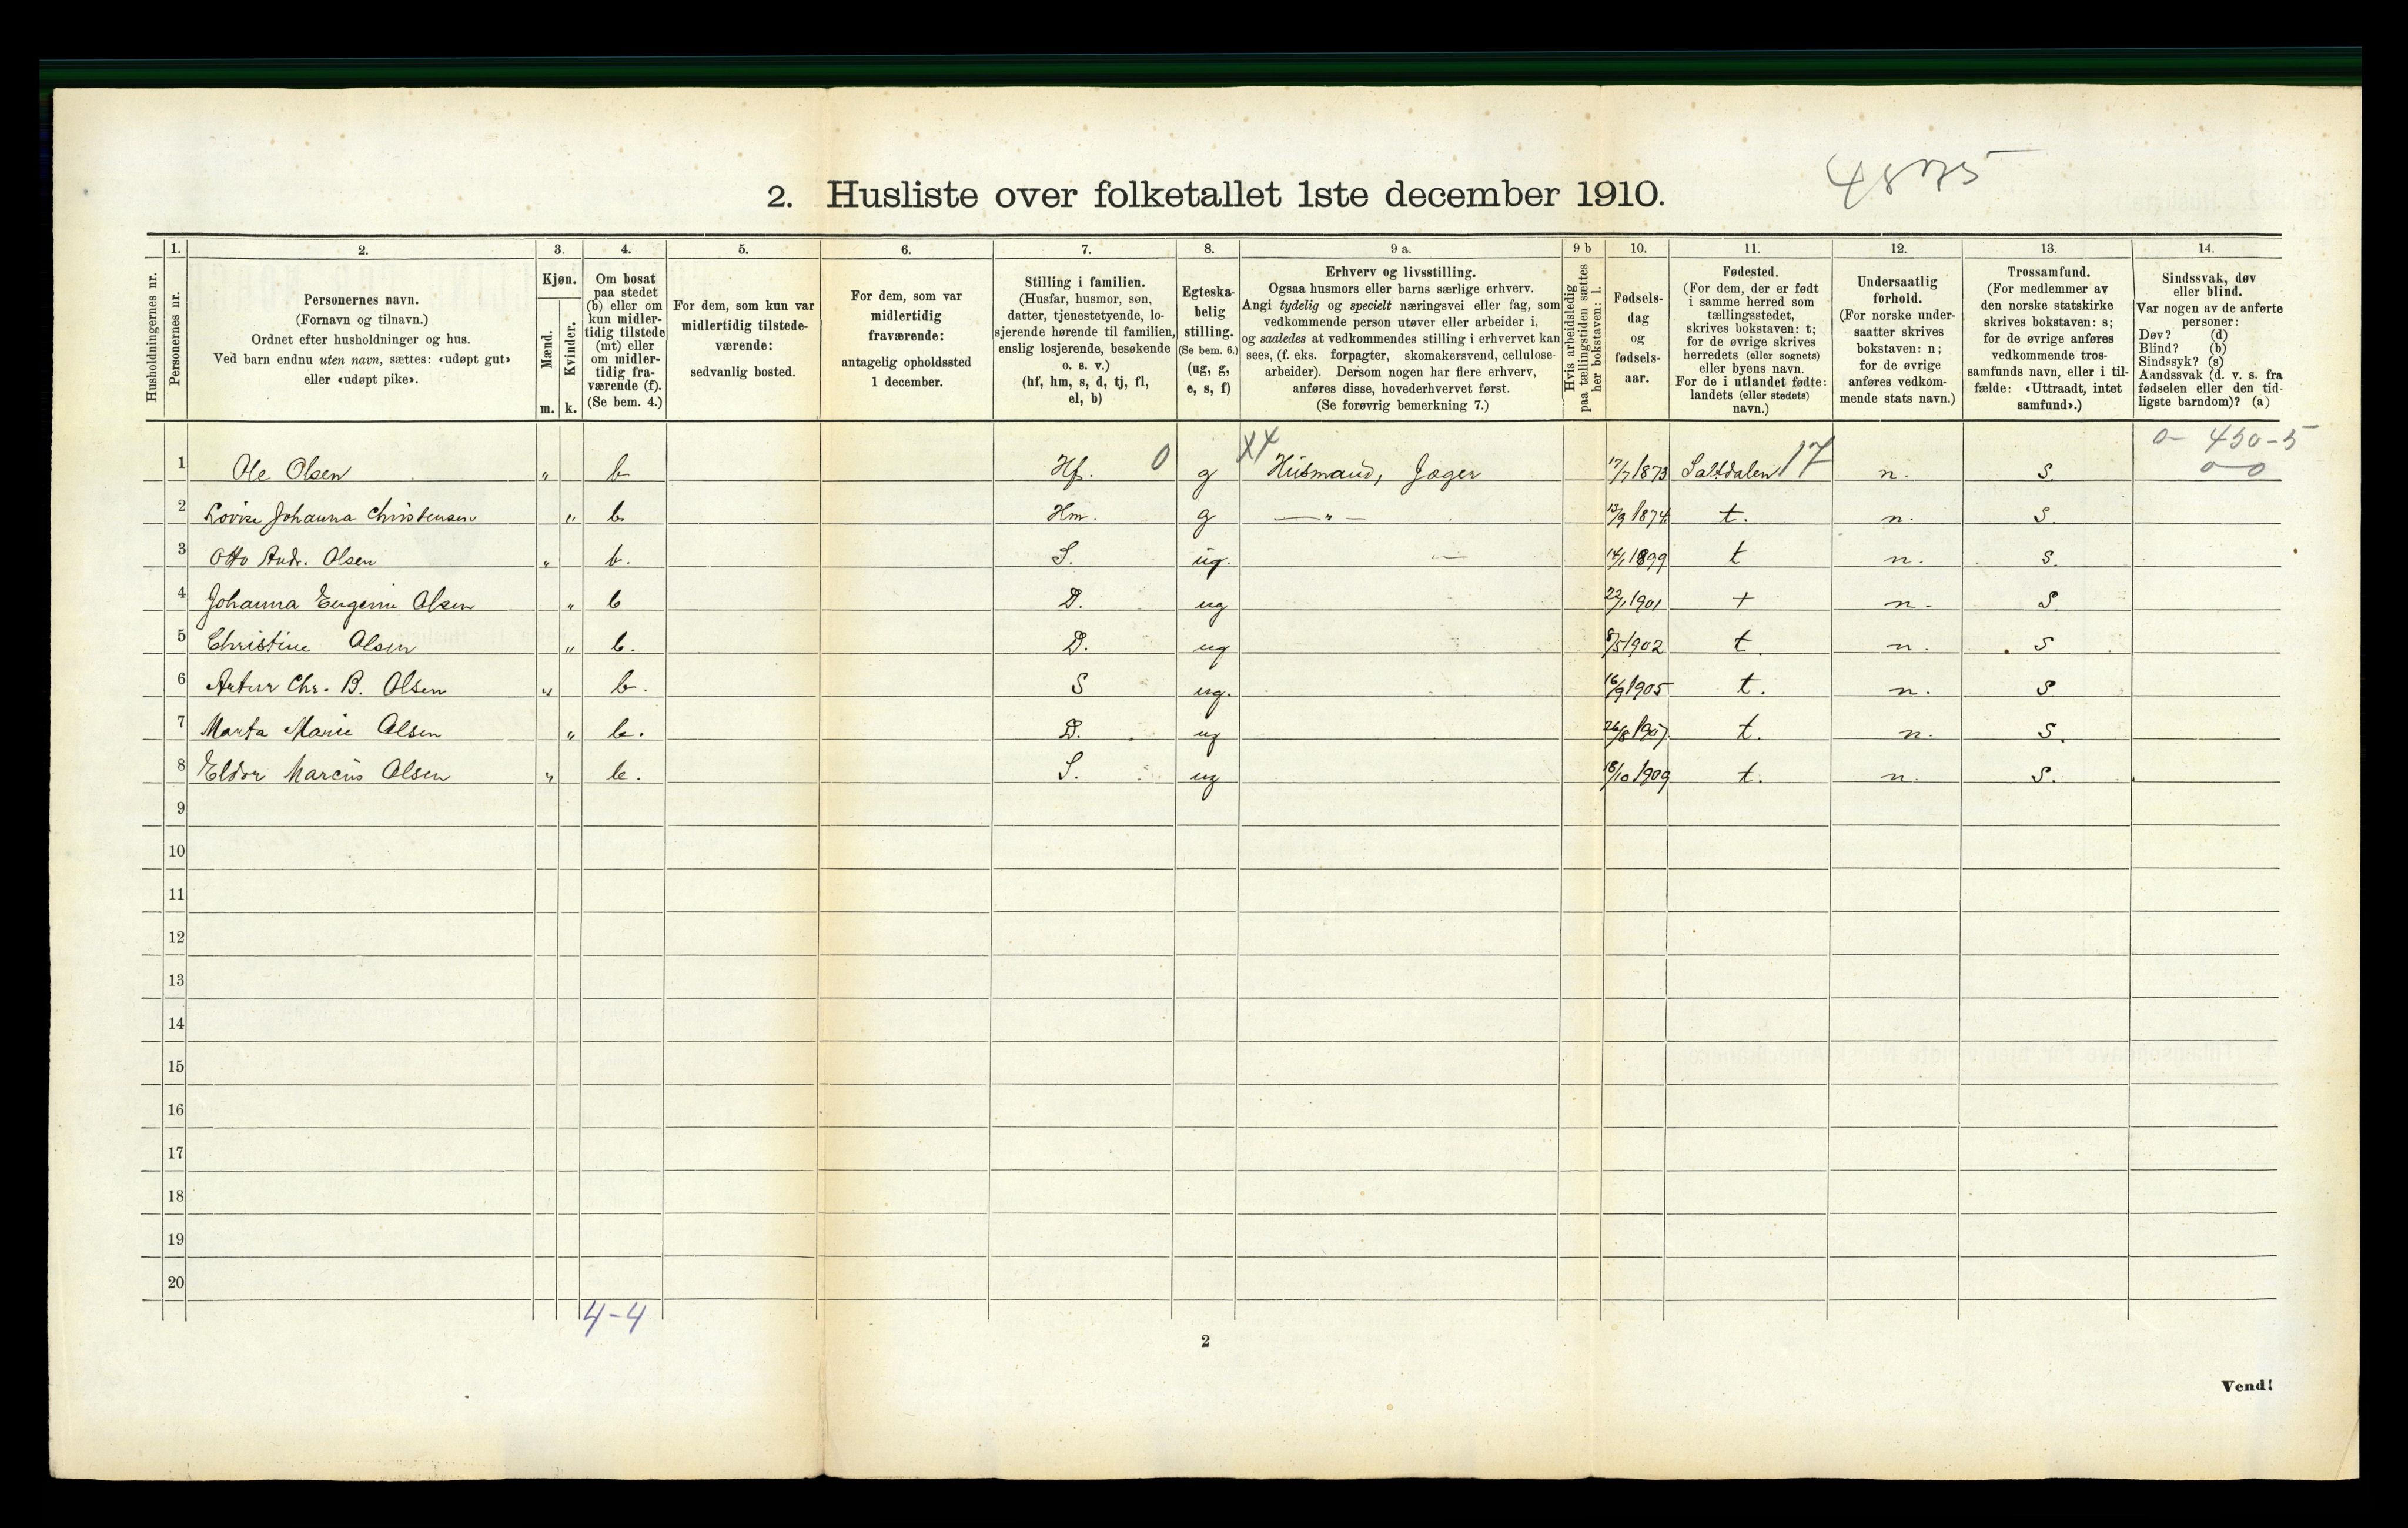 4875
2. Husliste over folketallet 1ste december 1910.
Husholdningernes nr.
1.
Personernes nr.
2.
Personernes navn.
(Fornavn og tilnavn.)
Ordnet efter husholdninger og hus.
Ved barn endnu uten navn, sættes: «udøpt gut»
eller «udøpt pike».
3.
Kjøn.
Mænd.
Kvinder.
m. k.
4.
Om bosat
paa stedet
(b) eller om
kun midler-
tidig tilstede
(mt) eller
om midler-
tidig fra-
værende (f).
(Se bem. 4.)
5.
For dem, som kun var
midlertidig tilstede-
værende:
sedvanlig bosted.
6.
For dem, som var
midlertidig
fraværende:
antagelig opholdssted
1 december.
7.
Stilling i familien.
(Husfar, husmor, søn,
datter, tjenestetyende, lo-
sjerende hørende til familien,
enslig losjerende, besøkende
o. s. v.)
(hf, hm, s, d, tj, fl,
el, b)
8.
Egteska-
belig
stilling.
(Se bem. 6.)
(ug, g,
e, s, f)
9 a.
Erhverv og livsstilling.
Ogsaa husmors eller barns særlige erhverv.
Angi tydelig og specielt næringsvei eller fag, som
vedkommende person utøver eller arbeider i,
og saaledes at vedkommendes stilling i erhvervet kan
sees, (f. eks. forpagter, skomakersvend, cellulose-
arbeider). Dersom nogen har flere erhverv,
anføres disse, hovederhvervet først.
(Se forøvrig bemerkning 7.)
9 b
Hvis arbeidsledig
paa tællingstiden sættes
her bokstaven: l.
10.
Fødsels-
dag
og
fødsels-
aar.
11.
Fødested.
(For dem, der er født
i samme herred som
tællingsstedet,
skrives bokstaven: t;
for de øvrige skrives
herredets (eller sognets)
eller byens navn.
For de i utlandet fødte:
landets (eller stedets)
navn.)
12.
Undersaatlig
forhold.
(For norske under-
saatter skrives
bokstaven: n;
for de øvrige
anføres vedkom-
mende stats navn.)
13.
Trossamfund.
(For medlemmer av
den norske statskirke
skrives bokstaven: s;
for de øvrige anføres
vedkommende tros-
samfunds navn, eller i til-
fælde: «Uttraadt, intet
samfund».)
14.
Sindssvak, døv
eller blind.
Var nogen av de anførte
personer:
Døv? (d)
Blind? (b)
Sindssyk? (s)
Aandssvak (d. v. s. fra
fødselen eller den tid-
ligste barndom)? (a)
0- 450-5
1 Ole Olsen " b Hf. 0 g X4 Husmand, Jæger 17/7 1873 Saltdalen 17 n. S. 0-0
2 Lovise Johanna Christensen " b Hm. g — " — 13/9 1874. t. n. S.
3 Otto Andr. Olsen " b. S. ug. — 14/1 1899 t n. S.
4 Johanna Eugenie Olsen " b D. ug 22/1 1901 t n. S.
5 Christine Olsen " b. D. ug 8/5 1902 t. n. S
6 Artur Chr. B. Olsen " b. S ug. 16/9 1905 t. n. S
7 Marta Marie Olsen " b. D. ug 26/8 1907. t. n. S.
8 Eldor Marcus Olsen " b. S. ug 18/10 1909 t. n. S.
9
10
11
12
13
14
15
16
17
18
19
20
4-4
2
Vend!